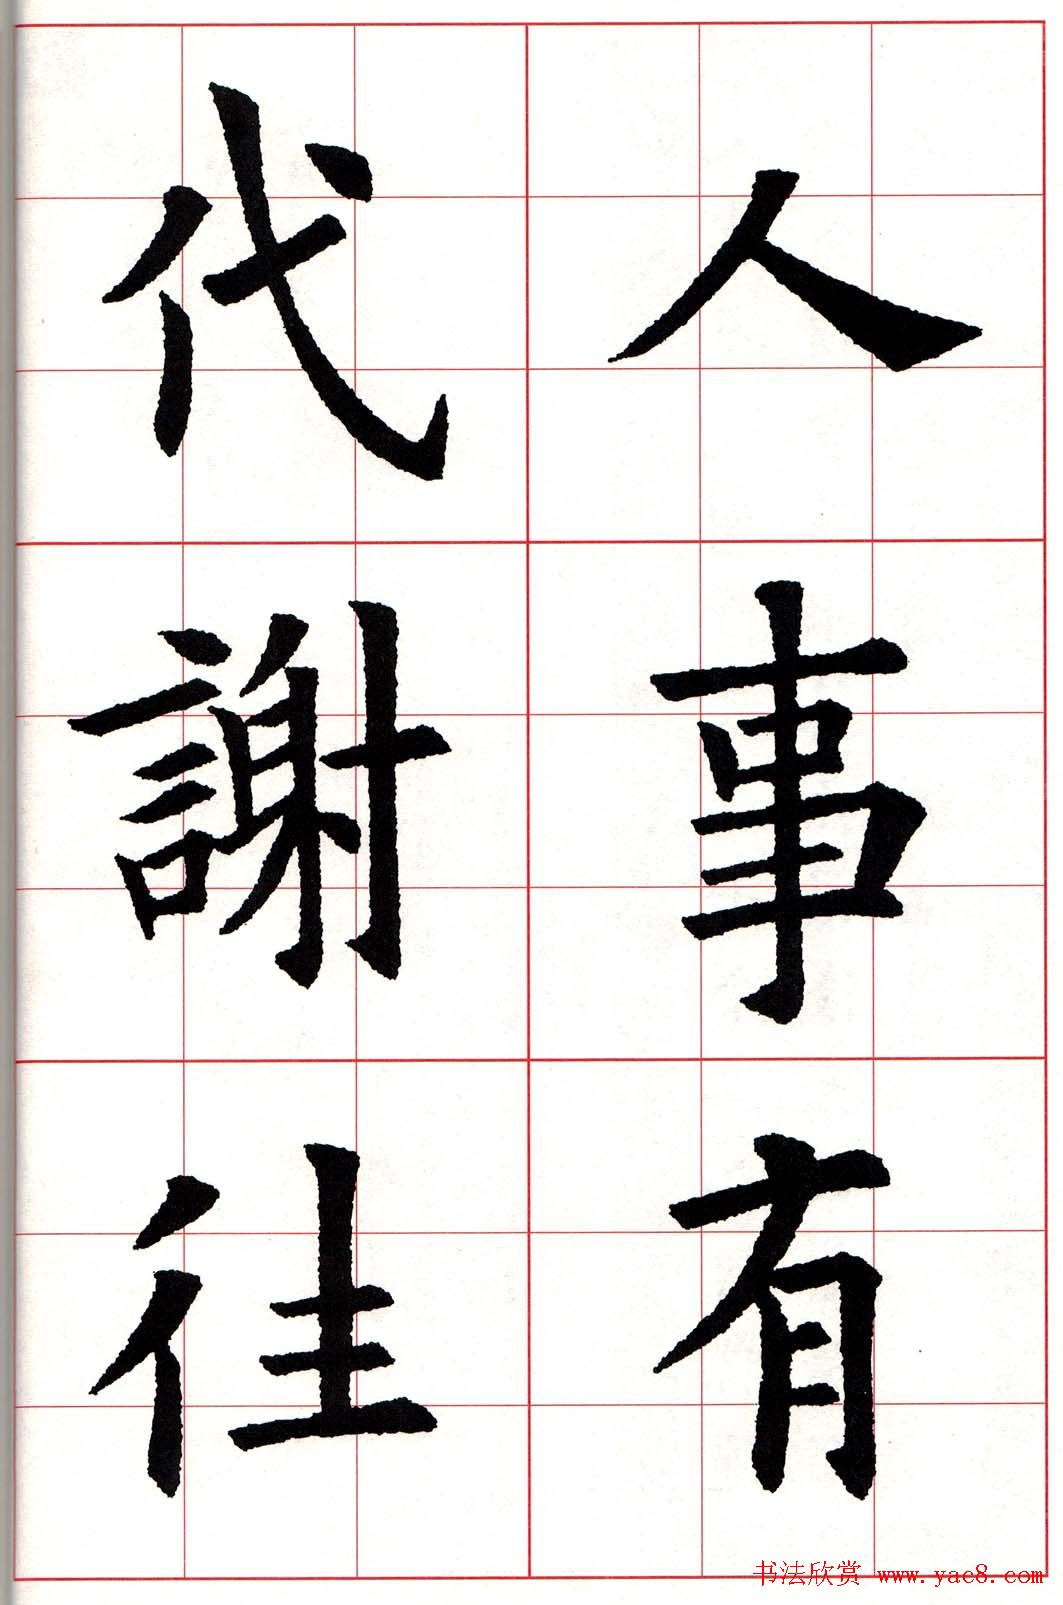 人事有
代謝往
书法欣赏 www.yac8.com